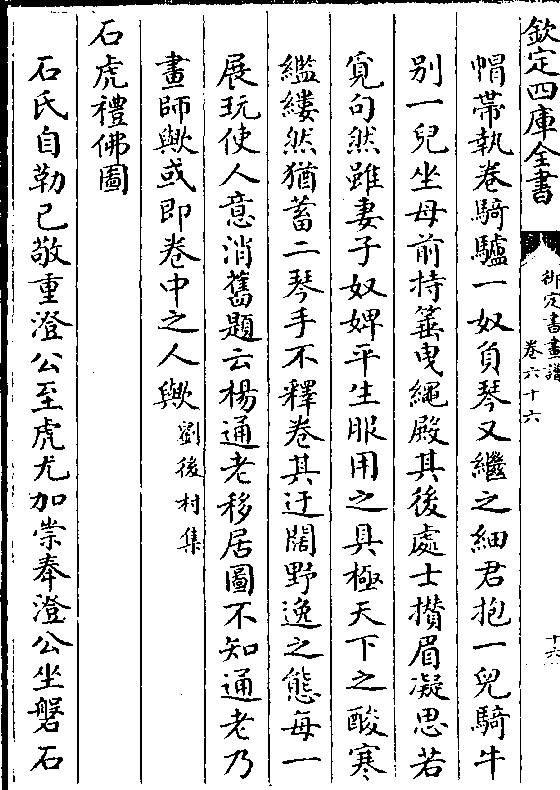 欽定四庫全書
御定書畫譜
卷六十六
十六
帽帶執卷騎驢一奴負琴又繼之細君抱一兒騎牛
別一兒坐母前持箠曳繩殿其後處士攢眉凝思若
覓句然雖妻子奴婢平生服用之具極天下之酸寒
繿縷然猶蓄二琴手不釋卷其迂闊野逸之態每一
展玩使人意消舊題云楊通老移居圖不知通老乃
畫師歟或即卷中之人歟劉後村集
石虎禮佛圖
石氏自勒已敬重澄公至虎尤加崇奉澄公坐磐石